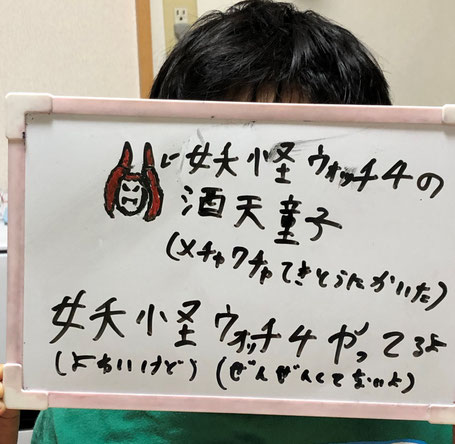 ←妖怪ウォッチ4の
酒天童子
(メチャクチャてきとうにかいた)
妖怪ウォッチ4やってるよ
(よわいけど) (ぜんぜんくてないよ)